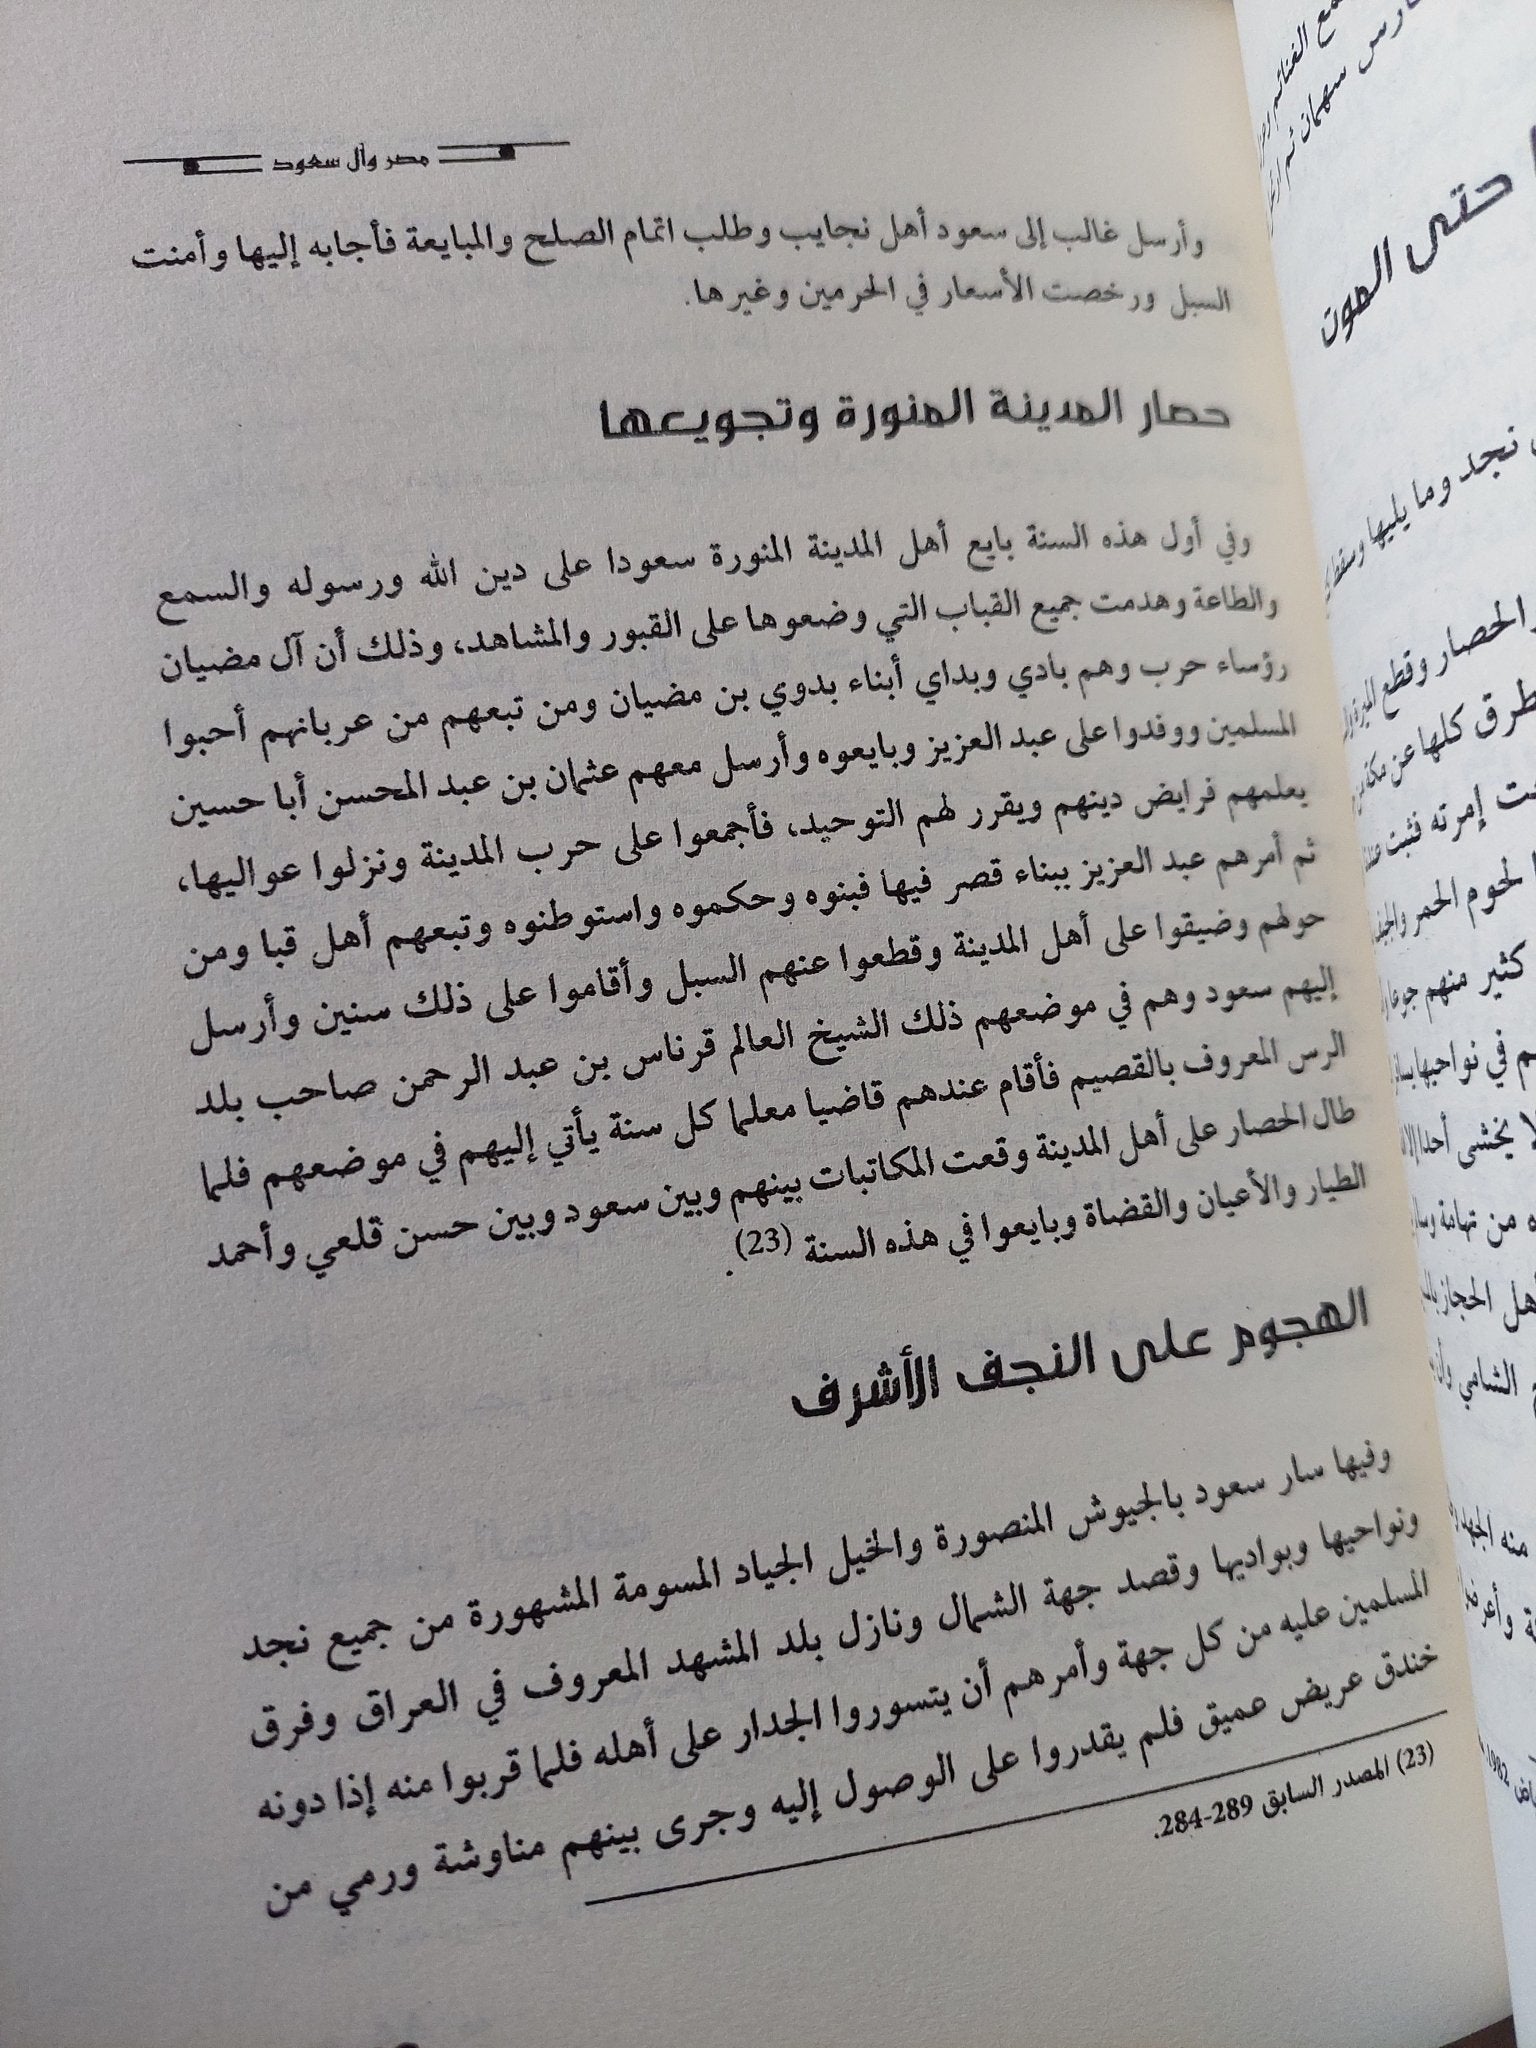 مصر وآل سعود
وأرسل غالب إلى سعود أهل نجايب وطلب اتمام الصلح والمبايعة فأجابه إليها وأمنت
السبل ورخصت الأسعار في الحرمين وغيرها.
حصار المدينة المنورة وتجويعها
وفي أول هذه السنة بايع أهل المدينة المنورة سعودا على دين الله ورسوله والسمع
والطاعة وهدمت جميع القباب التي وضعوها على القبور والمشاهد، وذلك أن آل مضيان
رؤساء حرب وهم بادي وبداي أبناء بدوي بن مضيان ومن تبعهم من عربانهم أحبوا
المسلمين ووفدوا على عبد العزيز وبايعوه وأرسل معهم عثمان بن عبد المحسن أبا حسين
يعلمهم فرايض دينهم ويقرر لهم التوحيد، فأجمعوا على حرب المدينة ونزلوا عواليها،
ثم أمرهم عبد العزيز ببناء قصر فيها فبنوه وحكموه واستوطنوه وتبعهم أهل قبا ومن
حولهم وضيقوا على أهل المدينة وقطعوا عنهم السبل وأقاموا على ذلك سنين وأرسل
إليهم سعود وهم في موضعهم ذلك الشيخ العالم قرناس بن عبد الرحمن صاحب بلد
الرس المعروف بالقصيم فأقام عندهم قاضيا معلما كل سنة يأتي إليهم في موضعهم فلما
طال الحصار على أهل المدينة وقعت المكاتبات بينهم وبين سعود وبين حسن قلعي وأحمد
الطيار والأعيان والقضاة وبايعوا في هذه السنة (23).
الهجوم على النجف الأشرف
وفيها سار سعود بالجيوش المنصورة والخيل الجياد المسومة المشهورة من جميع نجد
ونواحيها وبواديها وقصد جهة الشمال ونازل بلد المشهد المعروف في العراق وفرق
المسلمين عليه من كل جهة وأمرهم أن يتسوروا الجدار على أهله فلما قربوا منه إذا دونه
خندق عريض عميق فلم يقدروا على الوصول إليه وجرى بينهم مناوشة ورمي من
(23) المصدر السابق 289-284.
حتى الموت
نجد وما يليها وسقط
والحصار وقطع الميرة
كلها عن مكة
إمرته فثبت
لحوم الحمر
كثير منهم جوعا
في نواحيها
لا يخشى أحدا إلا
من تهامة
الحجاز
الشامي
منه الجهد
1982